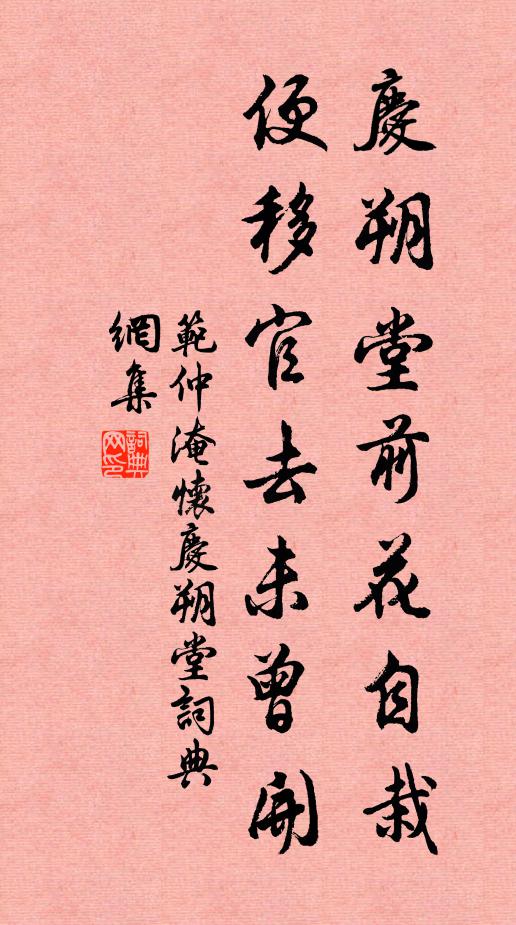 慶朔堂前花自栽
便移官去未曾開
範仲淹懷慶朔堂詞典
網集
詞典
网印